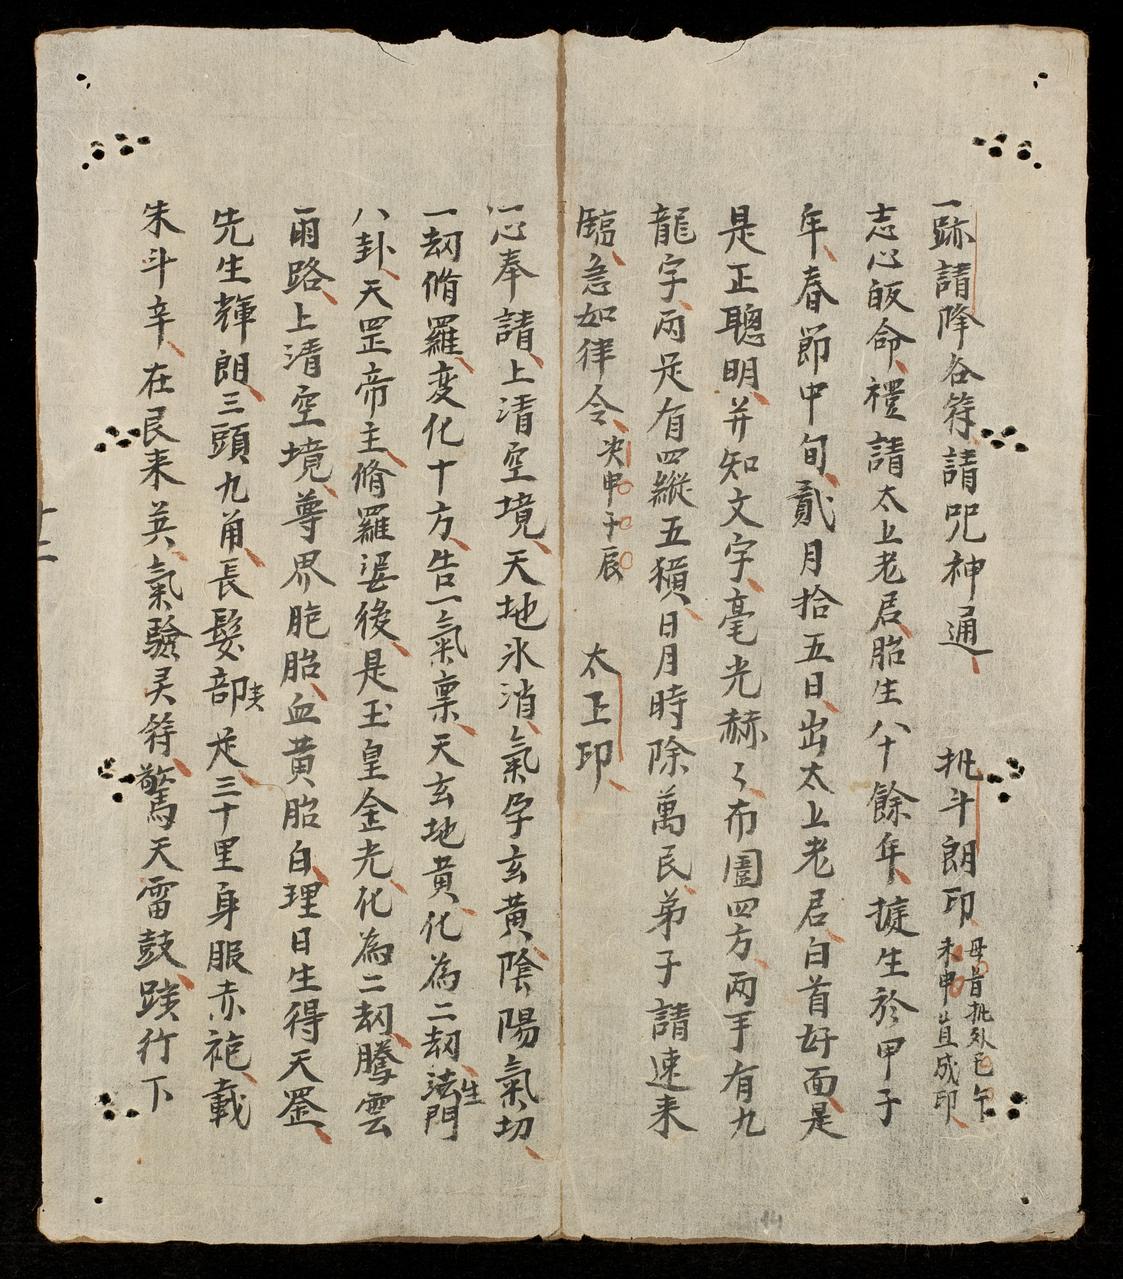 一跡請降各符請咒神通 批斗朗印 母首批處巳午未申豈成印
志心皈命禮請太上老君胎生八十餘年㨿生於甲子
年春節中旬貳月拾五日出太上老君白首好面是
是正聰明并知文字毫光赫々布圍四方兩手有九
龍字兩足有四縱五橫日月時除萬民弟子請速来
臨急如律令 决申子辰 太上印
一心奉請上清空境天地氷消氣孕玄黃陰陽氣切
一刼脩羅变化十方告一氣稟天玄地黄化為二刼法生門
八卦天罡帝主脩羅婆後是玉皇金光化為二刼騰雲
雨路上清空境尊界胞胎血黄胎白理日生得天罡
先生輝朗三頭九角長髮部夷足三十里身服赤袍載
朱斗辛在艮来英氣驗灵符驚天雷鼓踐行下
十二
14